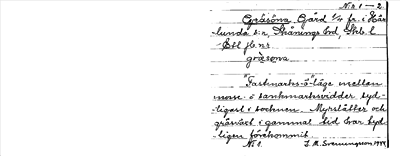 No 1 — 2.
Gräsöna Gård 1/4 fr. i Här-
lunda s:n, Skånings hd, Skb. l
Ett fb. ns
gräsona
"Fastmarks-ö"-läge mellan
mosse- o tankmarksvidder tyd-
ligast i socknen. Myrslåtter och
gräsväxt i gammal tid har tyd-
ligen förekommit
No 1. J. M. Svenningsson 1944